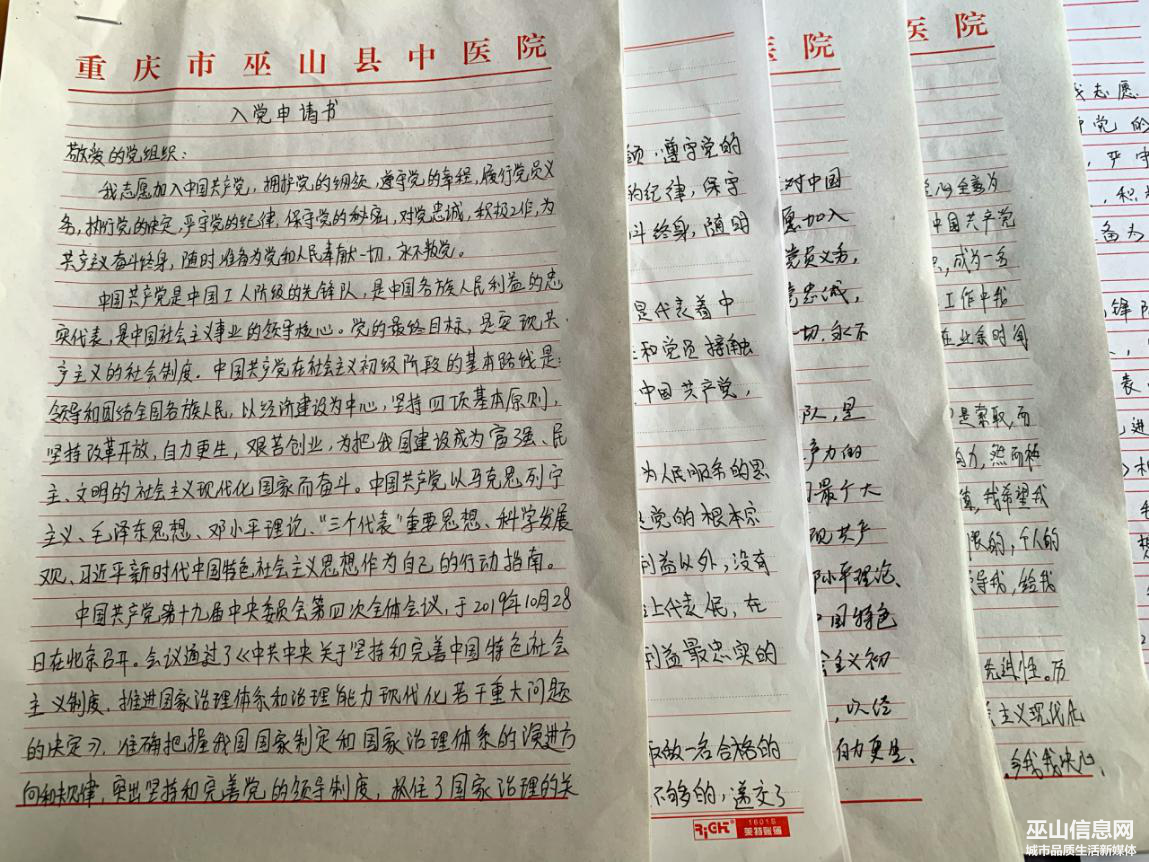 重庆市巫山县中医院
入党申请书
敬爱的党组织：
我志愿加入中国共产党，拥护党的纲领，遵守党的章程，履行党员义
务，执行党的决定，严守党的纪律，保守党的秘密，对党忠诚，积极工作，为
共产主义奋斗终身，随时准备为党和人民奉献一切，永不叛党。
中国共产党是中国工人阶级的先锋队，是中国各族人民利益的忠
实代表，是中国社会主义事业的领导核心。党的最终目标，是实现共
产主义的社会制度。中国共产党在社会主义初级阶段的基本路线是：
领导和团结全国各族人民，以经济建设为中心，坚持四项基本原则，
坚持改革开放，自力更生，艰苦创业，为把我国建设成为富强、民
主、文明的社会主义现代化国家而奋斗。中国共产党以马克思列宁
主义、毛泽东思想、邓小平理论、“三个代表”重要思想、科学发展
观、习近平新时代中国特色社会主义思想作为自己的行动指南。
中国共产党第十九届中央委员会第四次全体会议，于2019年10月28
日在北京召开。会议通过了《中共中央关于坚持和完善中国特色社会
主义制度、推进国家治理体系和治理能力现代化若干重大问题
的决定》，准确把握我国国家制定和国家治理体系的演进方
向和规律，突出坚持和完善党的领导制度，抓住了国家治理的关
领，遵守党的
的纪律，保守
斗终身，随时
是代表着中
和党员接触
中国共产党，
为人民服务的思
党的根本宗
利益以外，没有
上代表促，在
利益最忠实的
取做一名合格的
不够的，递交了
RiCH
16015
莱特账簿
医院
对中国
愿加入
党员义务，
党忠诚，
一切，永不
队，是
产力的
最广大
现共产
邓小平理论、
中国特色
会主义初
，以经
自力更生、
医院
中国共产党
，成为一名
工作中我
在业余时间
是索取，而
力，然而种
值，我希望我
限的，个人的
导我，给我
先进性。历
主义现代化
我志愿
护党的
，严守
，积极
备为
锋队
表
进
巫山信息网
城市品质生活新媒体